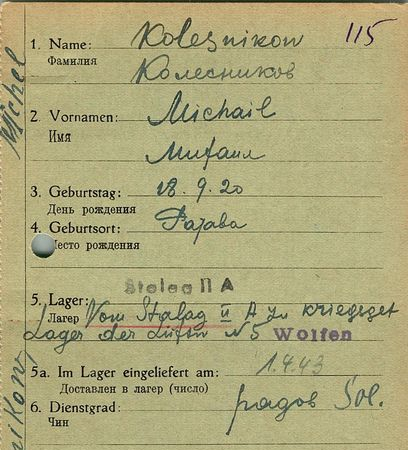 115
1. Name: Kolesnikow
Фамилия Колесников
2. Vornamen: Michail
Имя Михаил
3. Geburtstag: 28.9.20
День рождения
4. Geburtsort:
Место рождения
Stalag II A
5. Lager: Vom Stalag II A zu kriegsgef
Лагер
Lager der Luftw N5 Wolfen
5a. Im Lager eingeliefert am: 1.4.43
Доставлен в лагер (число)
6. Dienstgrad: рядов Sol.
Чин
Michel